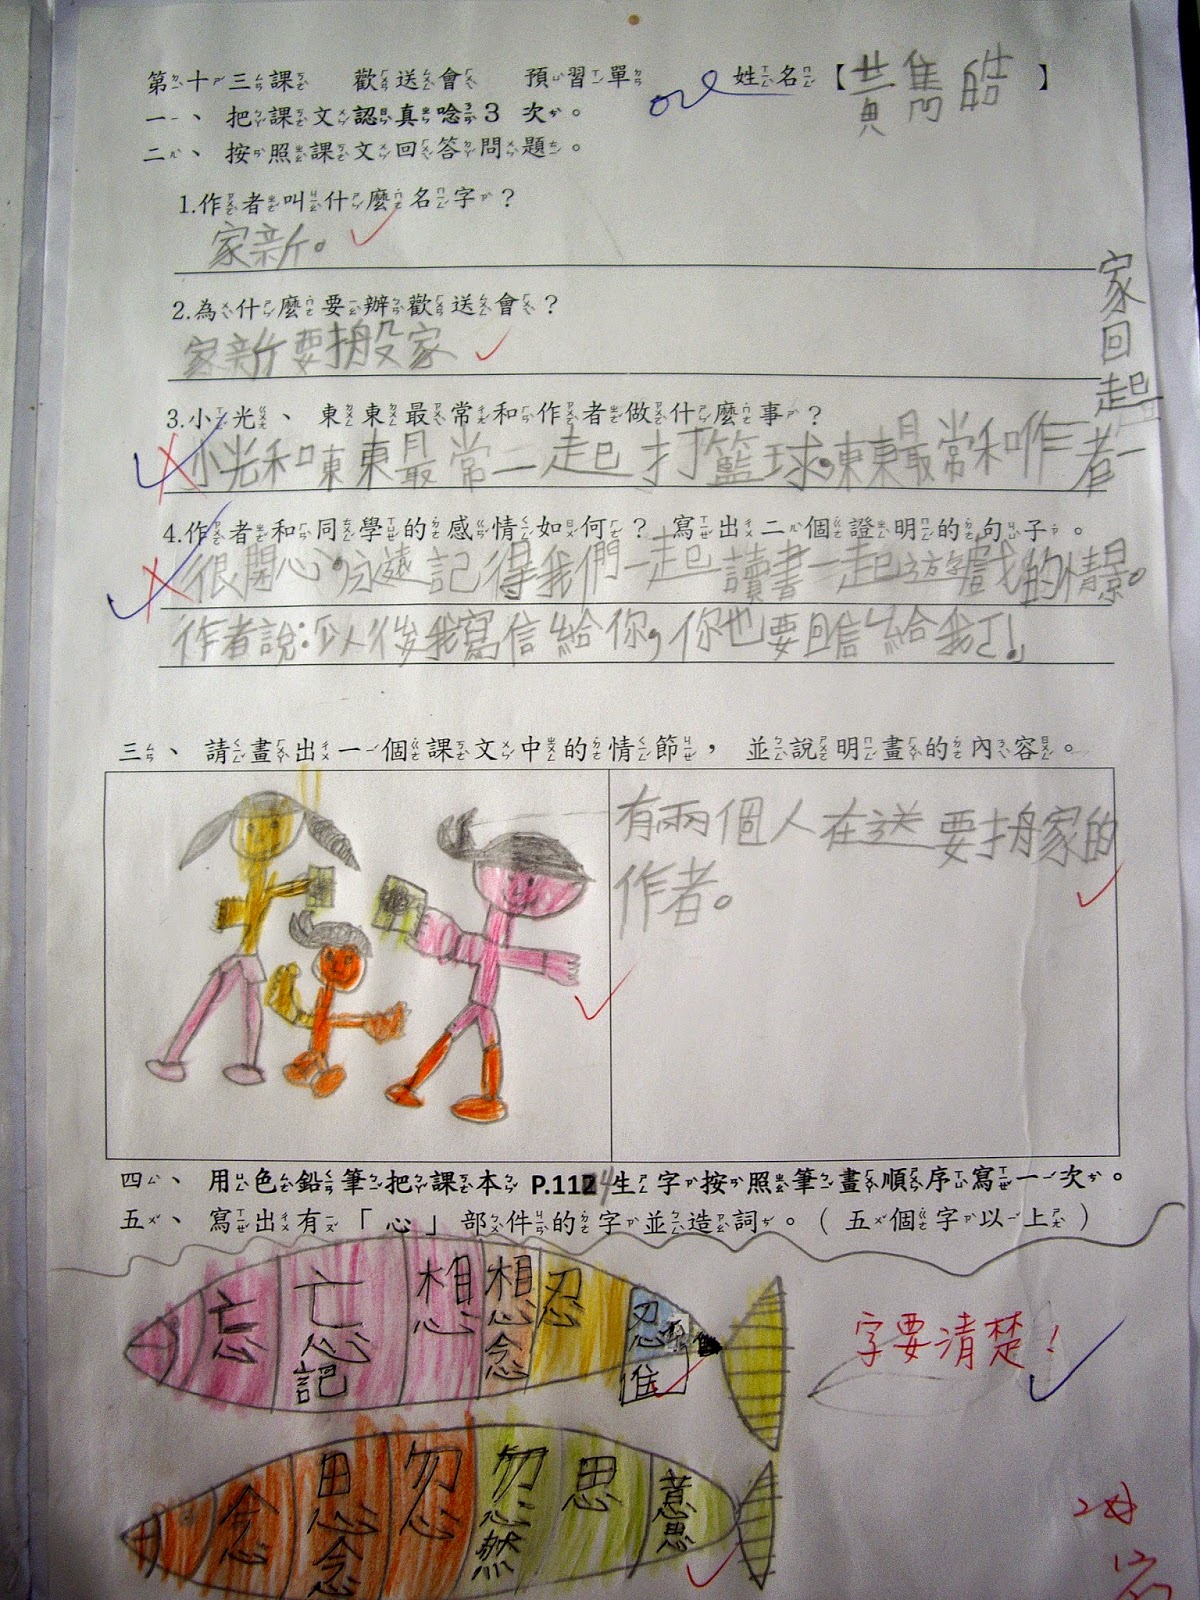 第十三課 歡送會 預習單 姓名【黃雋皓】
一、把課文認真唸3 次。
二、按照課文回答問題。
1.作者叫什麼名字？
家新。
2.為什麼要辦歡送會？
家新要搬家
3.小光、東東最常和作者做什麼事？
小光和東東最常一起打籃球,東東最常和作者一
起回家
4.作者和同學的感情如何？寫出二個證明的句子。
很開心。永遠記得我們一起讀書一起遊戲的情景。
作者說:以後我寫信給你,你也要回信給我ㄛ!
三、請畫出一個課文中的情節，並說明畫的內容。
有兩個人在送要搬家的
作者。
四、用色鉛筆把課本 P.114生字按照筆畫順序寫一次。
五、寫出有「心」部件的字並造詞。（五個字以上）
忘 忘記 想 想念 忍 忍
字要清楚！
念 思念 忽 忽然 思 意思